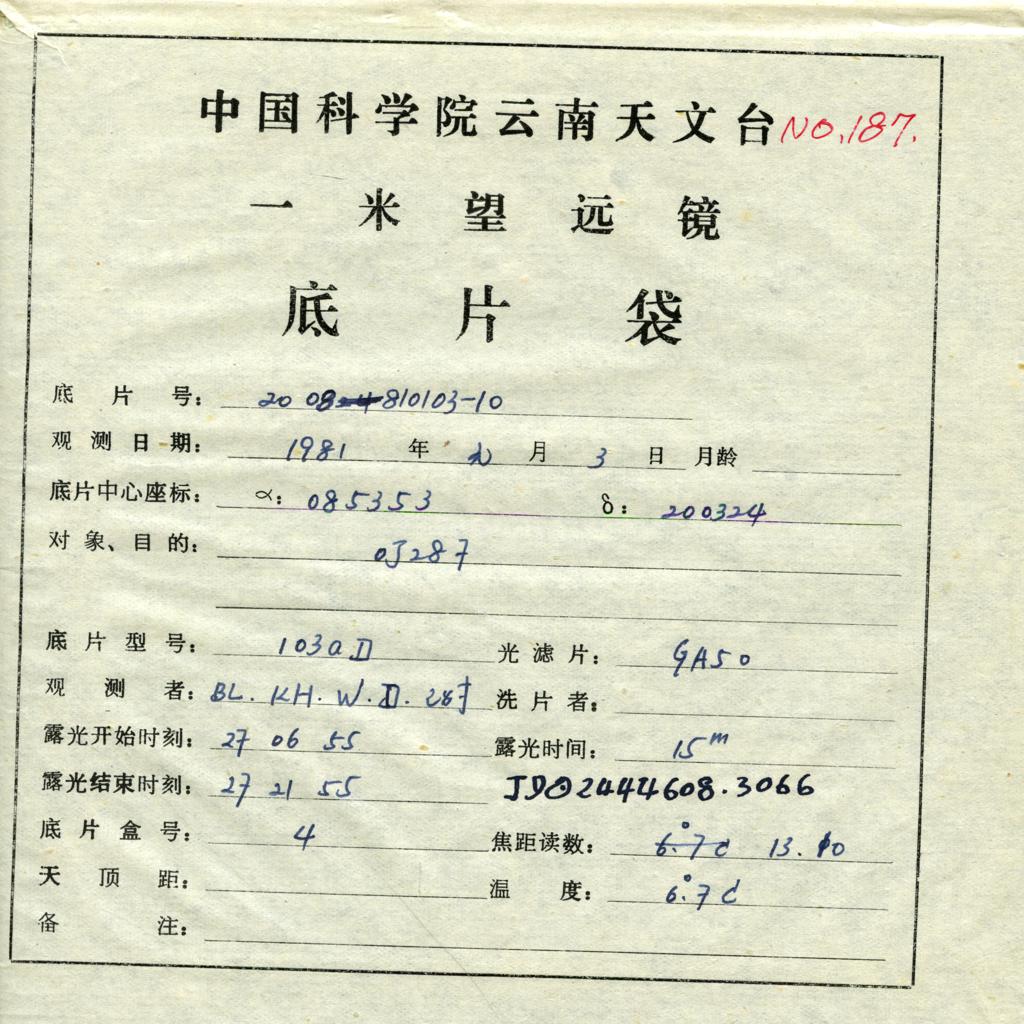 中国科学院云南天文台 NO.187.
一米望远镜
底片袋
底片号: 20 08 810103-10
观测日期: 1981 年 月 3 日 月龄
底片中心座标: α: 085353 δ: 200324
对象、目的: OJ287
底片型号: 103aD 光滤片: GA50
观测者: BL. KH. W. D. 洗片者:
露光开始时刻: 27 06 55 露光时间: 15m
露光结束时刻: 27 21 55 JD⊙2444608.3066
底片盒号: 4 焦距读数: 6.°7c 13.10
天顶距: 温度: 6.°7c
备注: